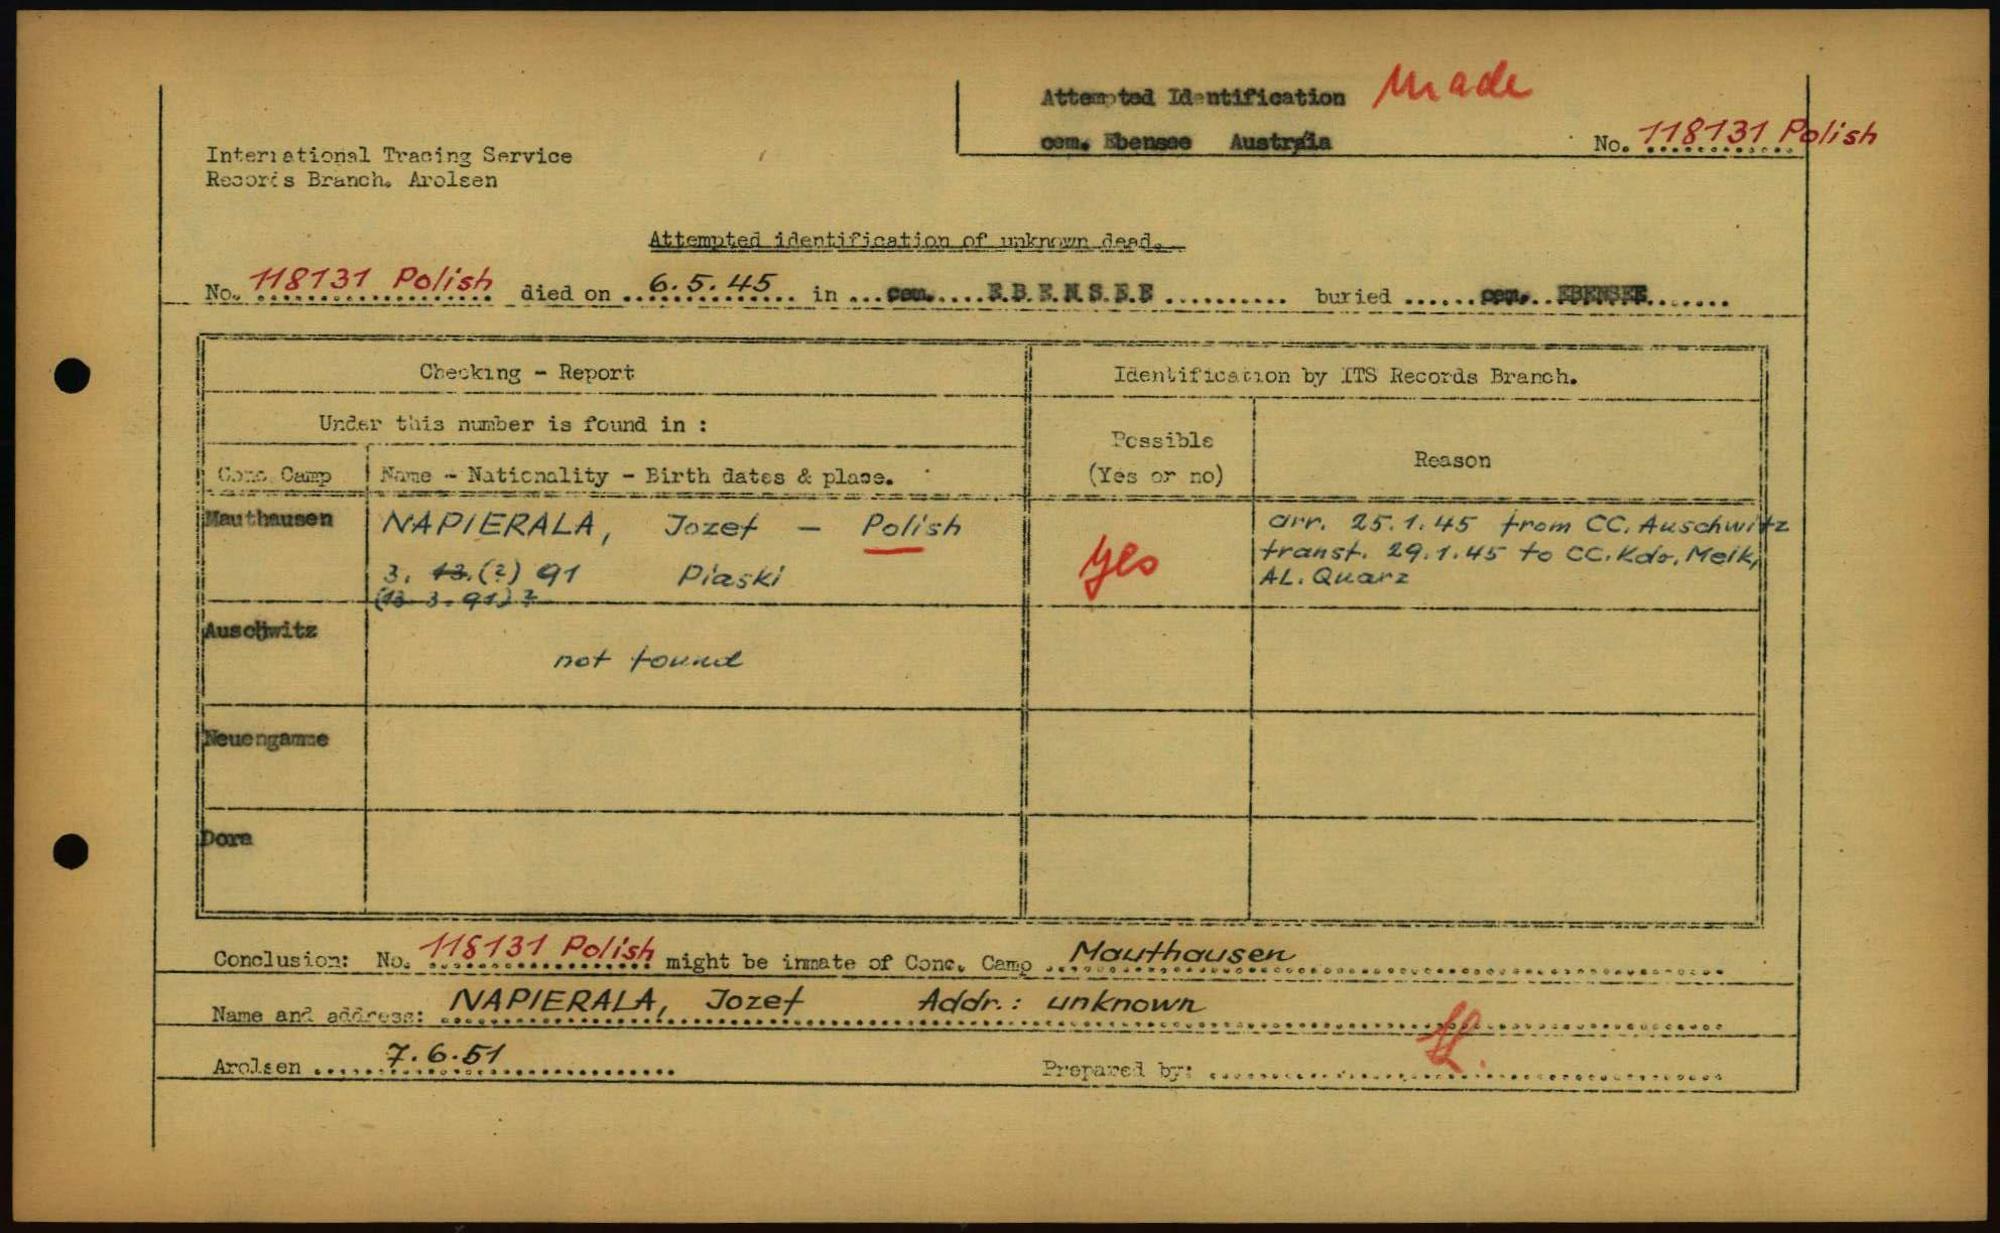 Attempted Identification Made
cem. Ebensee Austria
No. 118131 Polish
International Tracing Service
Records Branch. Arolsen
Attempted identification of unknown dead.
No. 118131 Polish died on 6.5.45 in cem. E.B.E.N.S.E.E buried cem. EBENSEE
Checking - Report
Identification by ITS Records Branch.
Under this number is found in :
Possible
(Yes or no)
Reason
Conc. Camp
Name - Nationality - Birth dates & place.
Mauthausen
NAPIERALA, Jozef — Polish
3. 13. (?) 91 Piaski
(13 3. 91) ?
yes
arr. 25.1.45 from CC. Auschwitz
transf. 29.1.45 to CC. Kdo. Melk,
AL. Quarz
Auschwitz
not found
Neuengamme
Dora
Conclusion: No. 118131 Polish might be inmate of Conc. Camp Mauthausen
Name and address: NAPIERALA, Jozef Addr.: unknown
Arolsen 7.6.51
Prepared by: